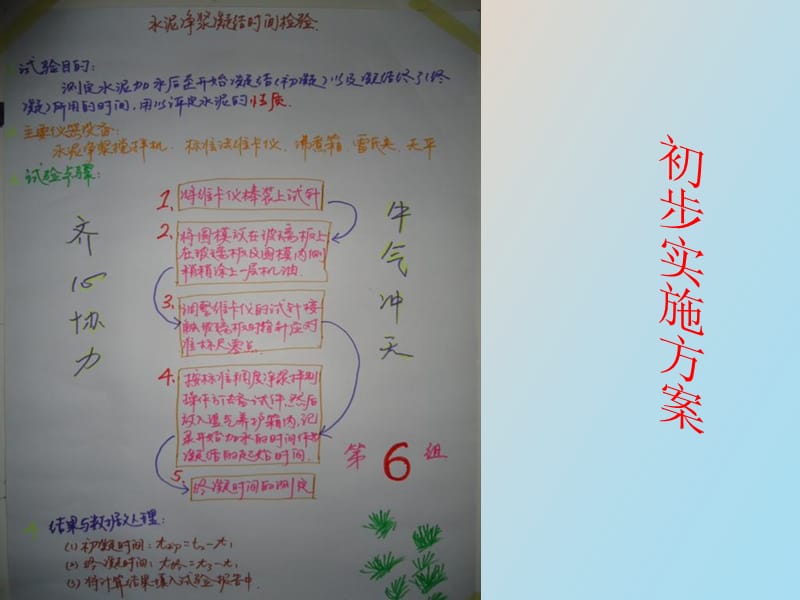 水泥净浆凝结时间检验.
试验目的:
测定水泥加水后至开始凝结(初凝)以及凝结终了(终
凝)所用的时间,用以评定水泥的性质.
主要仪器设备:
水泥净浆搅拌机. 标准法维卡仪. 沸煮箱. 雷氏夹. 天平
试验步骤:
齐心协力
1. 将维卡仪棒装上试针
2. 将圆模放在玻璃板上
在玻璃板及圆模内侧
稍稍涂上一层机油.
3. 调整维卡仪的试针接
触玻璃板时指针应对
准标尺零点.
4. 按标准稠度净浆拌制
操作方法制备试件,然后
放入湿气养护箱内,记
录开始加水的时间作为
凝结的起始时间.
5. 终凝时间的测定
牛气冲天
第6组
结果与数据处理:
(1) 初凝时间: t初=t2-t1
(2) 终凝时间: t终=t3-t1
(3) 将计算结果填入试验报告中.
初步实施方案